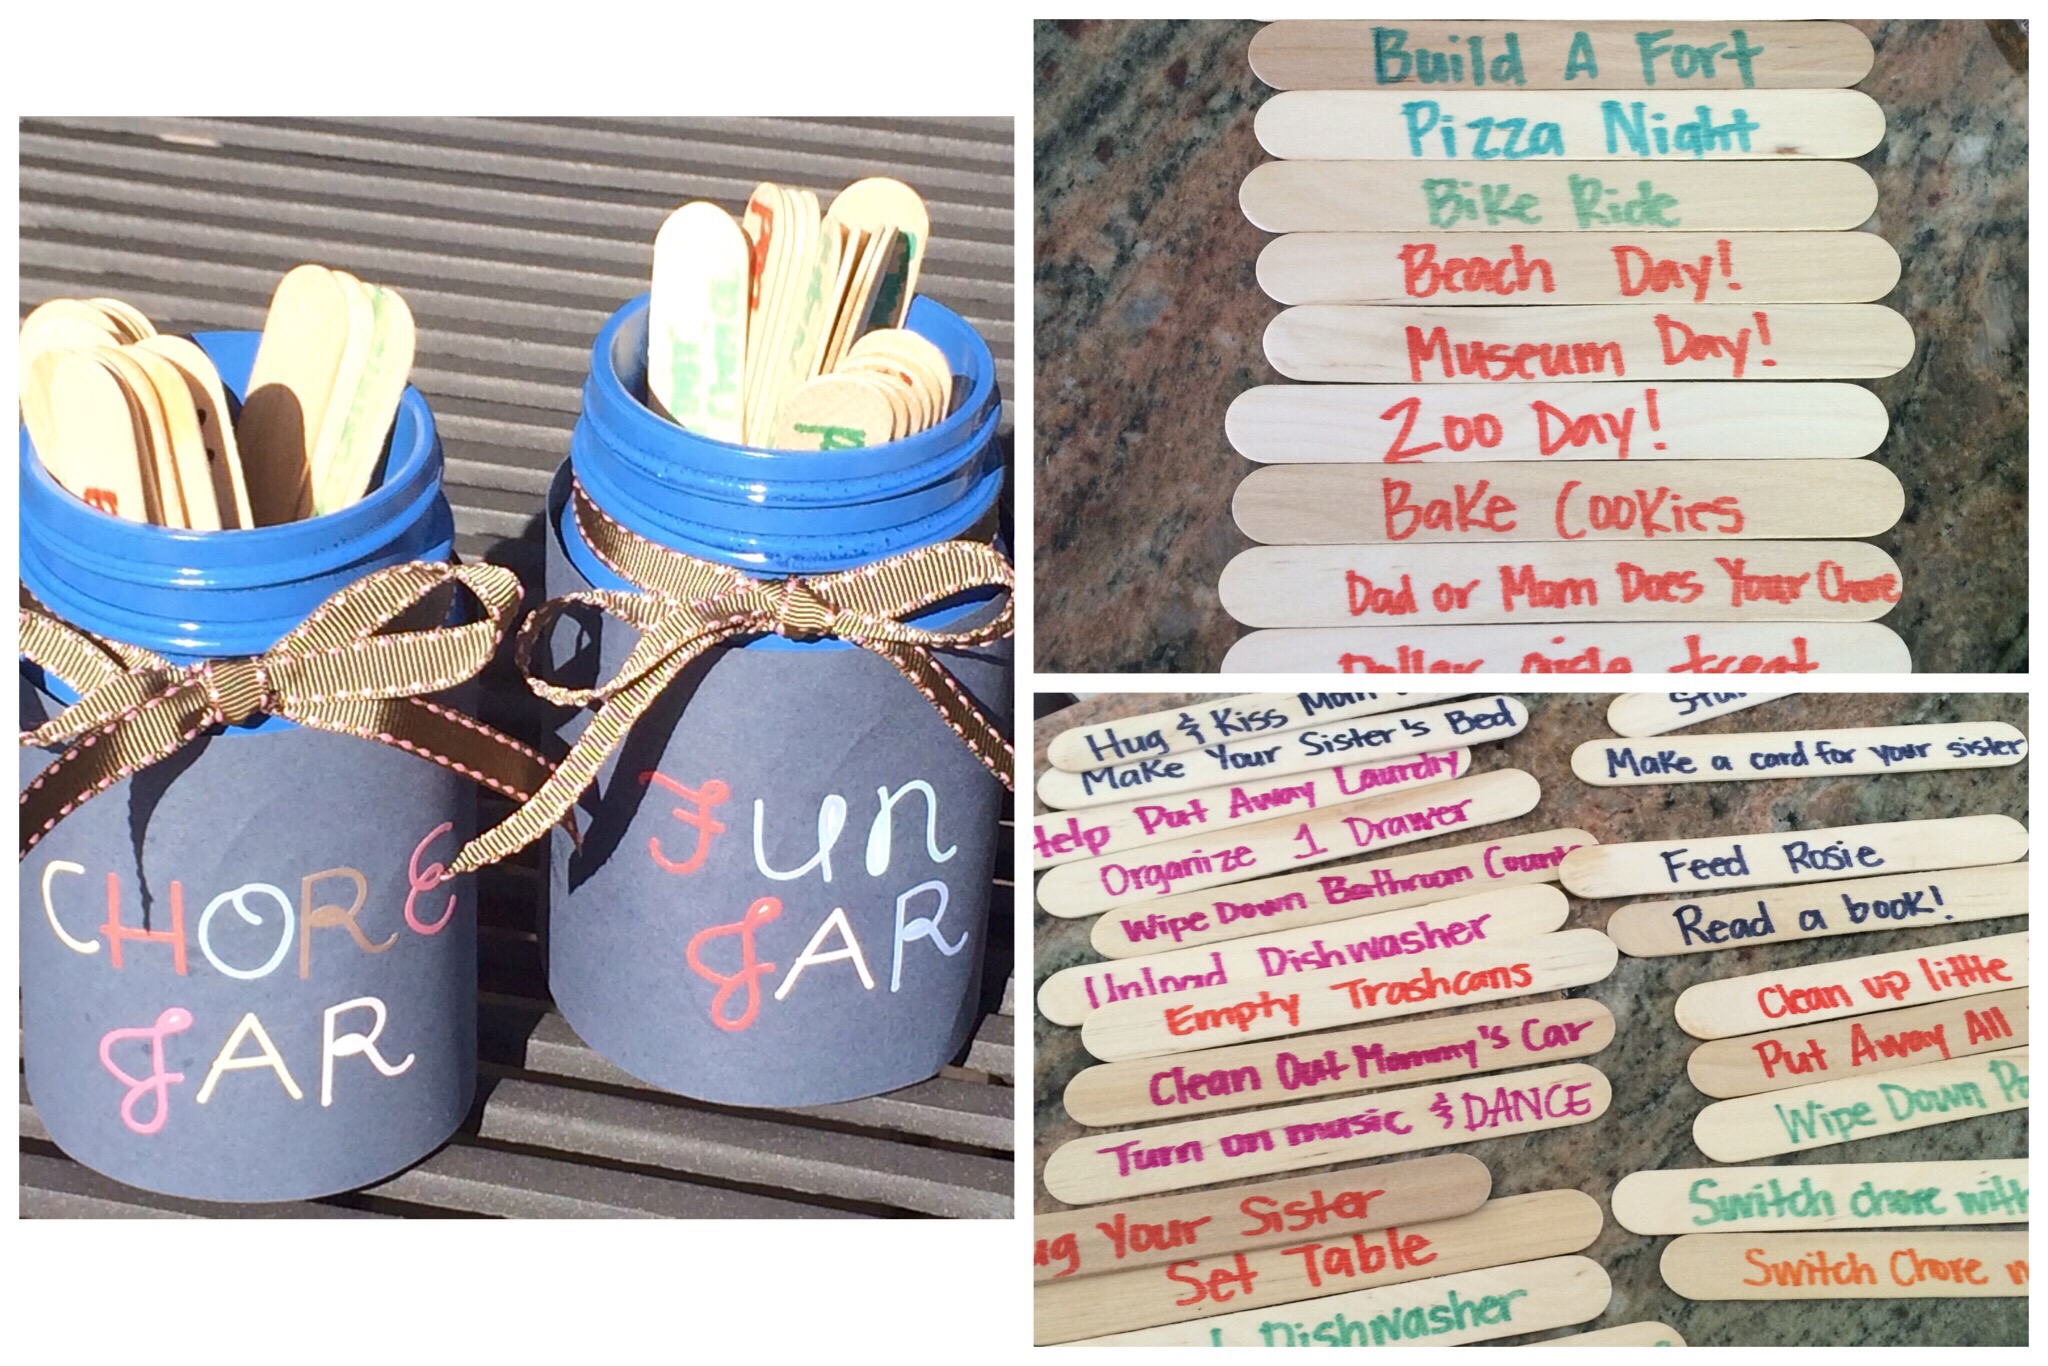 CHORE
JAR
Fun
JAR
Build A Fort
Pizza Night
Bike Ride
Beach Day!
Museum Day!
Zoo Day!
Bake Cookies
Dad or Mom Does Your Chore
Dollar aisle treat
Hug & Kiss Mom
Make Your Sister's Bed
Help Put Away Laundry
Organize 1 Drawer
Wipe Down Bathroom
Unload Dishwasher
Empty Trashcans
Clean Out Mommy's Car
Turn on music & DANCE
Your Sister
Set Table
Dishwasher
Make a card for your sister
Feed Rosie
Read a book!
Clean up little
Put Away All
Wipe Down
Switch chore with
Switch Chore